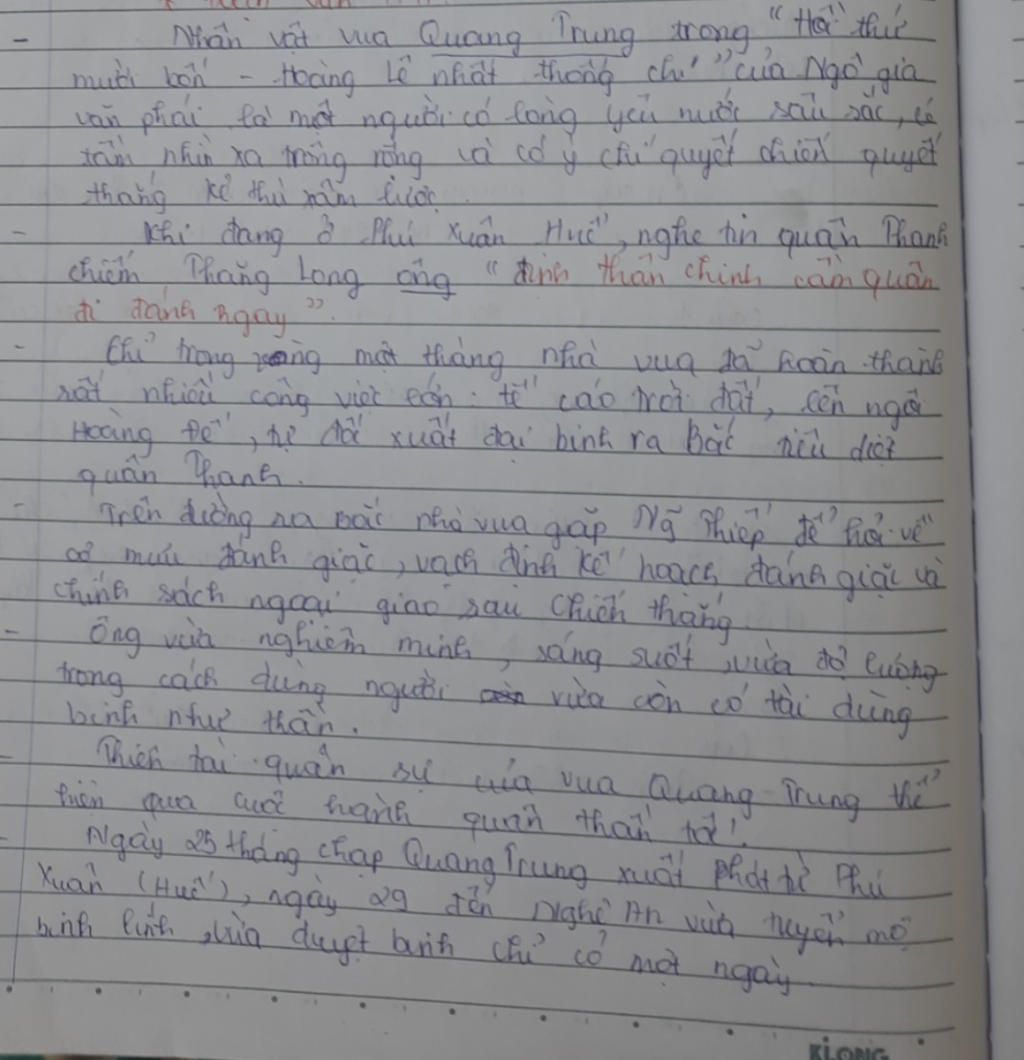 - Nhân vật vua Quang Trung trong "Hồi thứ
mười bốn - Hoàng Lê nhất thống chí" của Ngô gia
văn phái là một người có lòng yêu nước sâu sắc, có
tầm nhìn xa trông rộng và có ý chí quyết chiến quyết
thắng kẻ thù xâm lược.
- Khi đang ở Phú Xuân Huế, nghe tin quân Thanh
chiếm Thăng Long ông "định thân chinh cầm quân
đi đánh ngay".
- Chỉ trong vòng một tháng nhà vua đã hoàn thành
rất nhiều công việc lớn: tế cáo trời đất, lên ngôi
Hoàng Đế, tự đốc xuất đại binh ra Bắc tiêu diệt
quân Thanh.
- Trên đường ra Bắc nhà vua gặp Ng Thiếp để hỏi về
cơ mưu đánh giặc, vạch định kế hoạch đánh giặc và
chính sách ngoại giao sau chiến thắng
- Ông vừa nghiêm minh, sáng suốt, vừa độ lượng
trong cách dùng người vừa còn có tài dùng
binh như thần.
- Thiên tài quân sự của vua Quang Trung thể
hiện qua cuộc hành quân thần tốc!
- Ngày 25 tháng chạp Quang Trung xuất phát từ Phú
Xuân (Huế), ngày 29 đến Nghệ An vừa tuyển mộ
binh lính, vừa duyệt binh chỉ có một ngày
KLONG